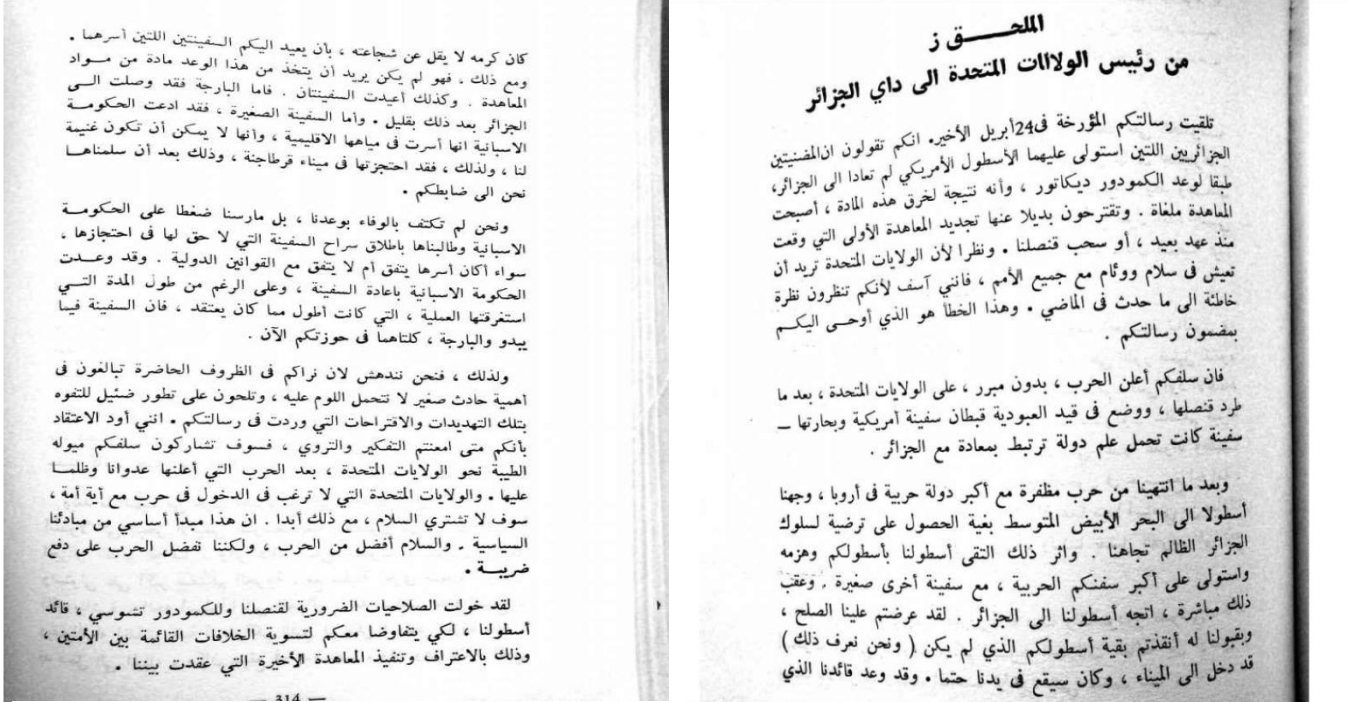 الملحـــق ز
من رئيس الولااات المتحدة الى داي الجزائر
تلقيت رسالتكم المؤرخة فى24أبريل الأخير. انكم تقولون ان المضنيتين
الجزائريين اللتين استولى عليهما الأسطول الأمريكي لم تعادا الى الجزائر،
طبقا لوعد الكمودور ديكاتور ، وأنه نتيجة لخرق هذه المادة ، أصبحت
المعاهدة ملغاة . وتقترحون بديلا عنها تجديد المعاهدة الأولى التي وقعت
منذ عهد بعيد ، أو سحب قنصلنا . ونظرا لأن الولايات المتحدة تريد أن
تعيش فى سلام ووئام مع جميع الأمم ، فانني آسف لأنكم تنظرون نظرة
خاطئة الى ما حدث فى الماضي . وهذا الخطأ هو الذي أوحـى اليكـم
بمضمون رسالتكم .
فان سلفكم أعلن الحرب ، بدون مبرر ، على الولايات المتحدة ، بعد ما
طرد قنصلها ، ووضع فى قيد العبودية قبطان سفينة أمريكية وبحارتها ــ
سفينة كانت تحمل علم دولة ترتبط بمعادة مع الجزائر .
وبعد ما انتهينا من حرب مظفرة مع أكبر دولة حربية فى أروبا ، وجهنا
أسطولا الى البحر الأبيض المتوسط بغية الحصول على ترضية لسلوك
الجزائر الظالم تجاهنا . واثر ذلك التقى أسطولنا بأسطولكم وهزمه
واستولى على أكبر سفنكم الحربية ، مع سفينة أخرى صغيرة . وعقب
ذلك مباشرة ، اتجه أسطولنا الى الجزائر . لقد عرضتم علينا الصلح ،
وبقبولنا له أنقذتم بقية أسطولكم الذي لم يكن ( ونحن نعرف ذلك )
قد دخل الى الميناء ، وكان سيقع فى يدنا حتما . وقد وعد قائدنا الذي
كان كرمه لا يقل عن شجاعته ، بأن يعيد اليكم السفينتين اللتين أسرهما .
ومع ذلك . فهو لم يكن يريد أن يتخذ من هذا الوعد مادة من مــواد
المعاهدة . وكذلك أعيدت السفينتان . فاما البارجة فقد وصلت الـى
الجزائر بعد ذلك بقليل . وأما السفينة الصغيرة ، فقد ادعت الحكومـة
الاسبانية انها أسرت فى مياهها الاقليمية ، وأنها لا يمكن أن تكون غنيمة
لنا ، ولذلك ، فقد احتجزتها فى ميناء قرطاجنة ، وذلك بعد أن سلمناهـا
نحن الى ضابطكم .
ونحن لم نكتف بالوفاء بوعدنا ، بل مارسنا ضغطا على الحكومـة
الاسبانية وطالبناها باطلاق سراح السفينة التي لا حق لها فى احتجازها ،
سواء أكان أسرها يتفق أم لا يتفق مع القوانين الدولية . وقد وعـدت
الحكومة الاسبانية باعادة السفينة ، وعلى الرغم من طول المدة التـي
استغرقتها العملية ، التي كانت أطول مما كان يعتقد ، فان السفينة فيما
يبدو والبارجة ، كلتاهما فى حوزتكم الآن .
ولذلك ، فنحن نندهش لان نراكم فى الظروف الحاضرة تبالغون فى
أهمية حادث صغير لا تتحمل اللوم عليه ، وتلحون على تطور ضئيل للتفوه
بتلك التهديدات والاقتراحات التي وردت فى رسالتكم . انني أود الاعتقاد
بأنكم متى امعنتم التفكير والتروي ، فسوف تشاركون سلفكم ميوله
الطيبة نحو الولايات المتحدة ، بعد الحرب التي أعلنها عدوانا وظلمـا
عليها . والولايات المتحدة التي لا ترغب فى الدخول فى حرب مع أية أمة ،
سوف لا تشتري السلام ، مع ذلك أبدا . ان هذا مبدأ أساسي من مبادئنا
السياسية . والسلام أفضل من الحرب ، ولكننا نفضل الحرب على دفع
ضريبـة .
لقد خولت الصلاحيات الضرورية لقنصلنا وللكمودور تشوسي ، قائد
أسطولنا ، لكي يتفاوضا معكم لتسوية الخلافات القائمة بين الأمتين ،
وذلك بالاعتراف وتنفيذ المعاهدة الأخيرة التي عقدت بيننا .
— 314 —